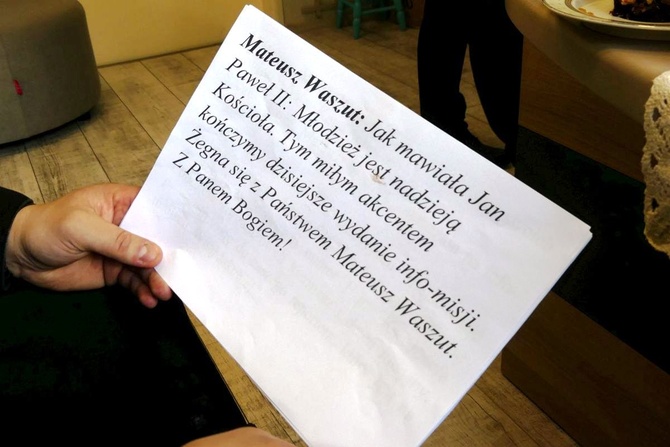 Mateusz Waszut: Jak mawiała Jan
Paweł II: Młodzież jest nadzieją
Kościoła. Tym miłym akcentem
kończymy dzisiejsze wydanie info-misji.
Żegna się z Państwem Mateusz Waszut.
Z Panem Bogiem!